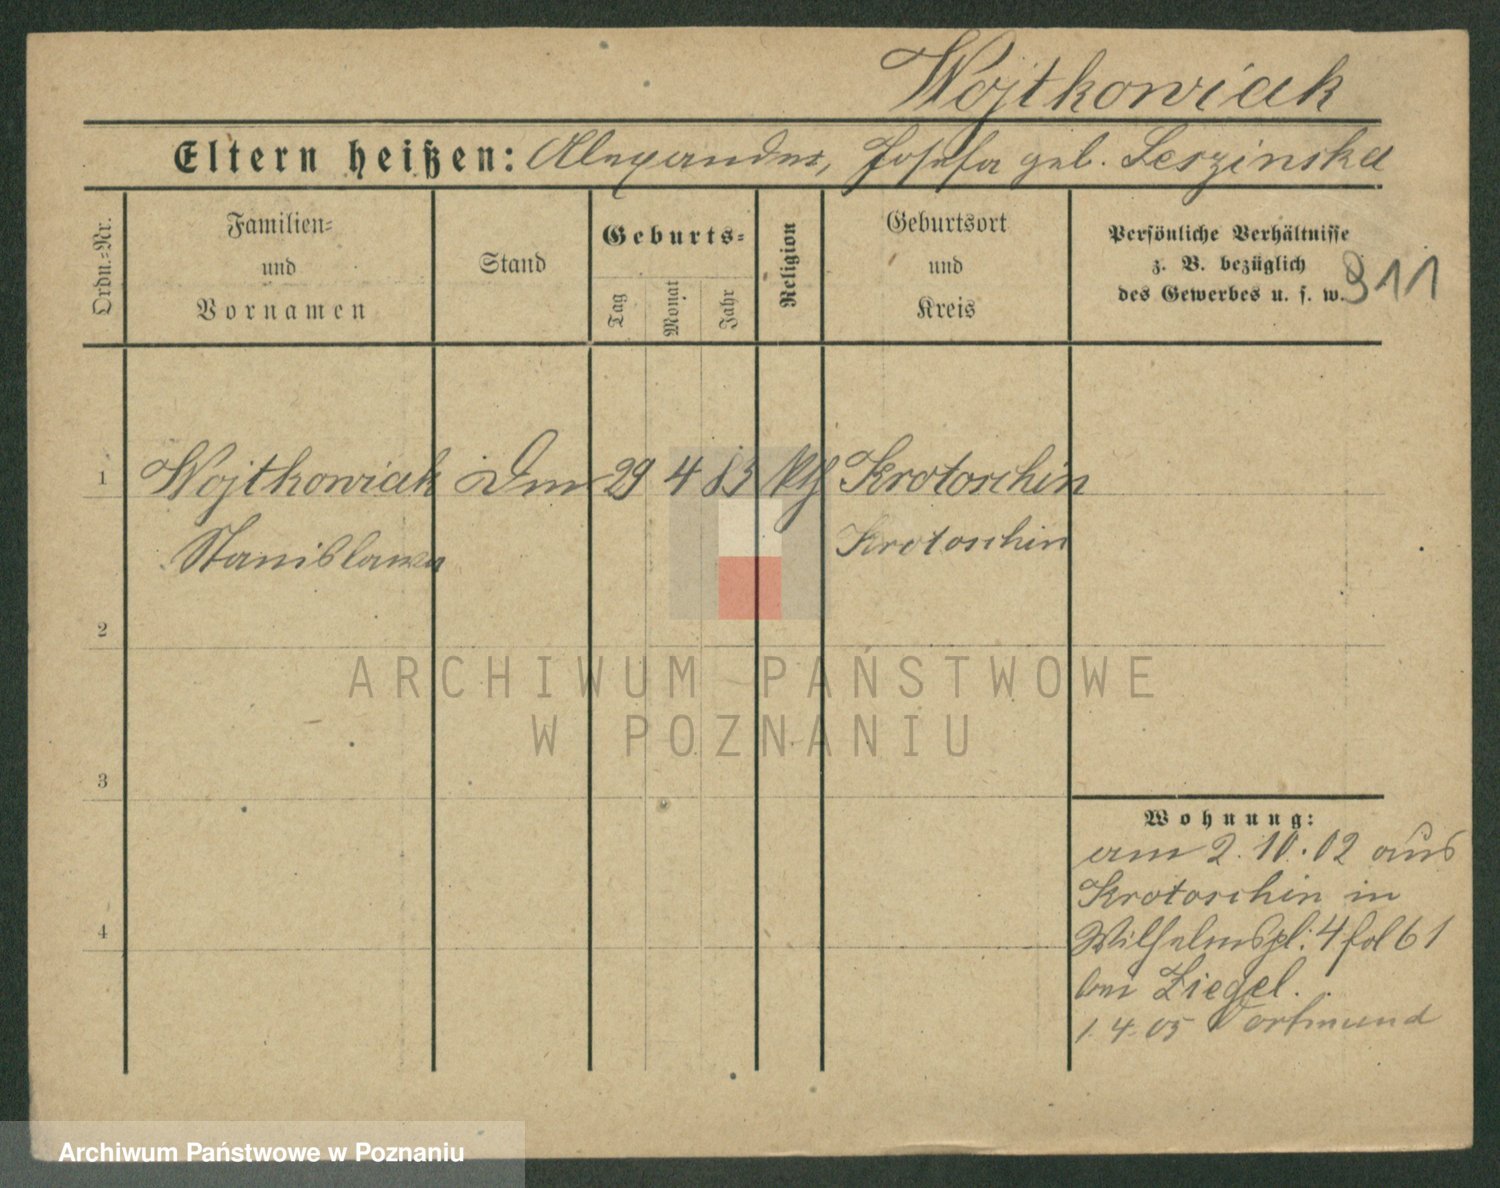 Wojtkowiak
Eltern heißen: Alexander, Josefa geb. Leszinska
Ordn.-Nr.
Familien-
und
Vornamen
Stand
Geburts-
Tag
Monat
Jahr
Religion
Geburtsort
und
Kreis
Persönliche Verhältnisse
z. B. bezüglich
des Gewerbes u. s. w.
911
1 Wojtkowiak Dm 29 4 83 kth Krotoschin
Stanislawa Krotoschin
2
3
4
Wohnung:
am 2.10.02 aus
Krotoschin in
Wilhelmspl. 4 fol 61
bei Ziegel.
1.4.05 Dortmund
ARCHIWUM PAŃSTWOWE
W POZNANIU
Archiwum Państwowe w Poznaniu